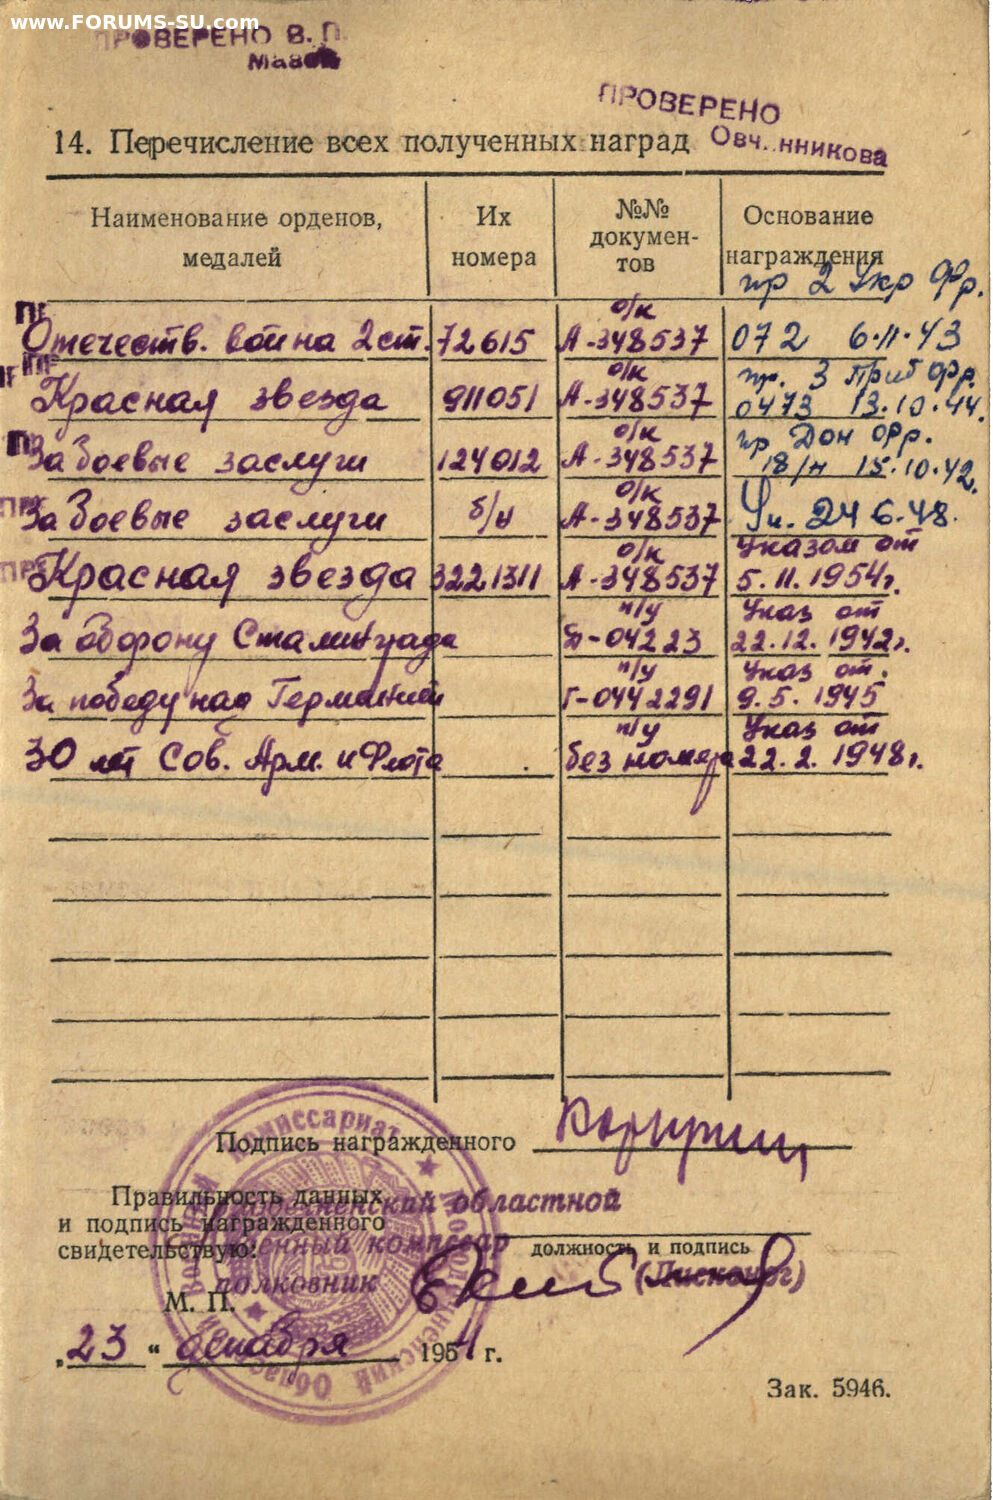 www.FORUMS-SU.com
ПРОВЕРЕНО В. П.
ПРОВЕРЕНО
Овч..нникова
14. Перечисление всех полученных наград
Наименование орденов, медалей
Их номера
№№ докумен-тов
Основание награждения
пр 2 Укр Фр.
о/к
Отечеств. война 2 ст. 72615 А-348537 072 6-11-43
о/к пр. 3 Приб Фр.
Красная звезда 911051 А-348537 0473 13.10.44.
о/к пр Дон Фр.
За боевые заслуги 124012 А-348537 18/н 15.10.42.
о/к
За боевые заслуги б/н А-348537 Ук. 24 6.48.
о/к Указом от
Красная звезда 3221311 А-348537 5.11.1954г.
п/у Указ от
За оборону Сталинграда Ъ-04223 22.12.1942г.
п/у Указ от.
За победу над Германией Г-0442291 9.5.1945
п/у Указ от
30 лет Сов. Арм. и Флота без номера 22.2.1948г.
Подпись награжденного
Правильность данных
и подпись награжденного
свидетельствую:
областной
военный комиссар
полковник
должность и подпись
М. П.
„23 “ декабря 1954 г.
Военный Комиссариат
Зак. 5946.